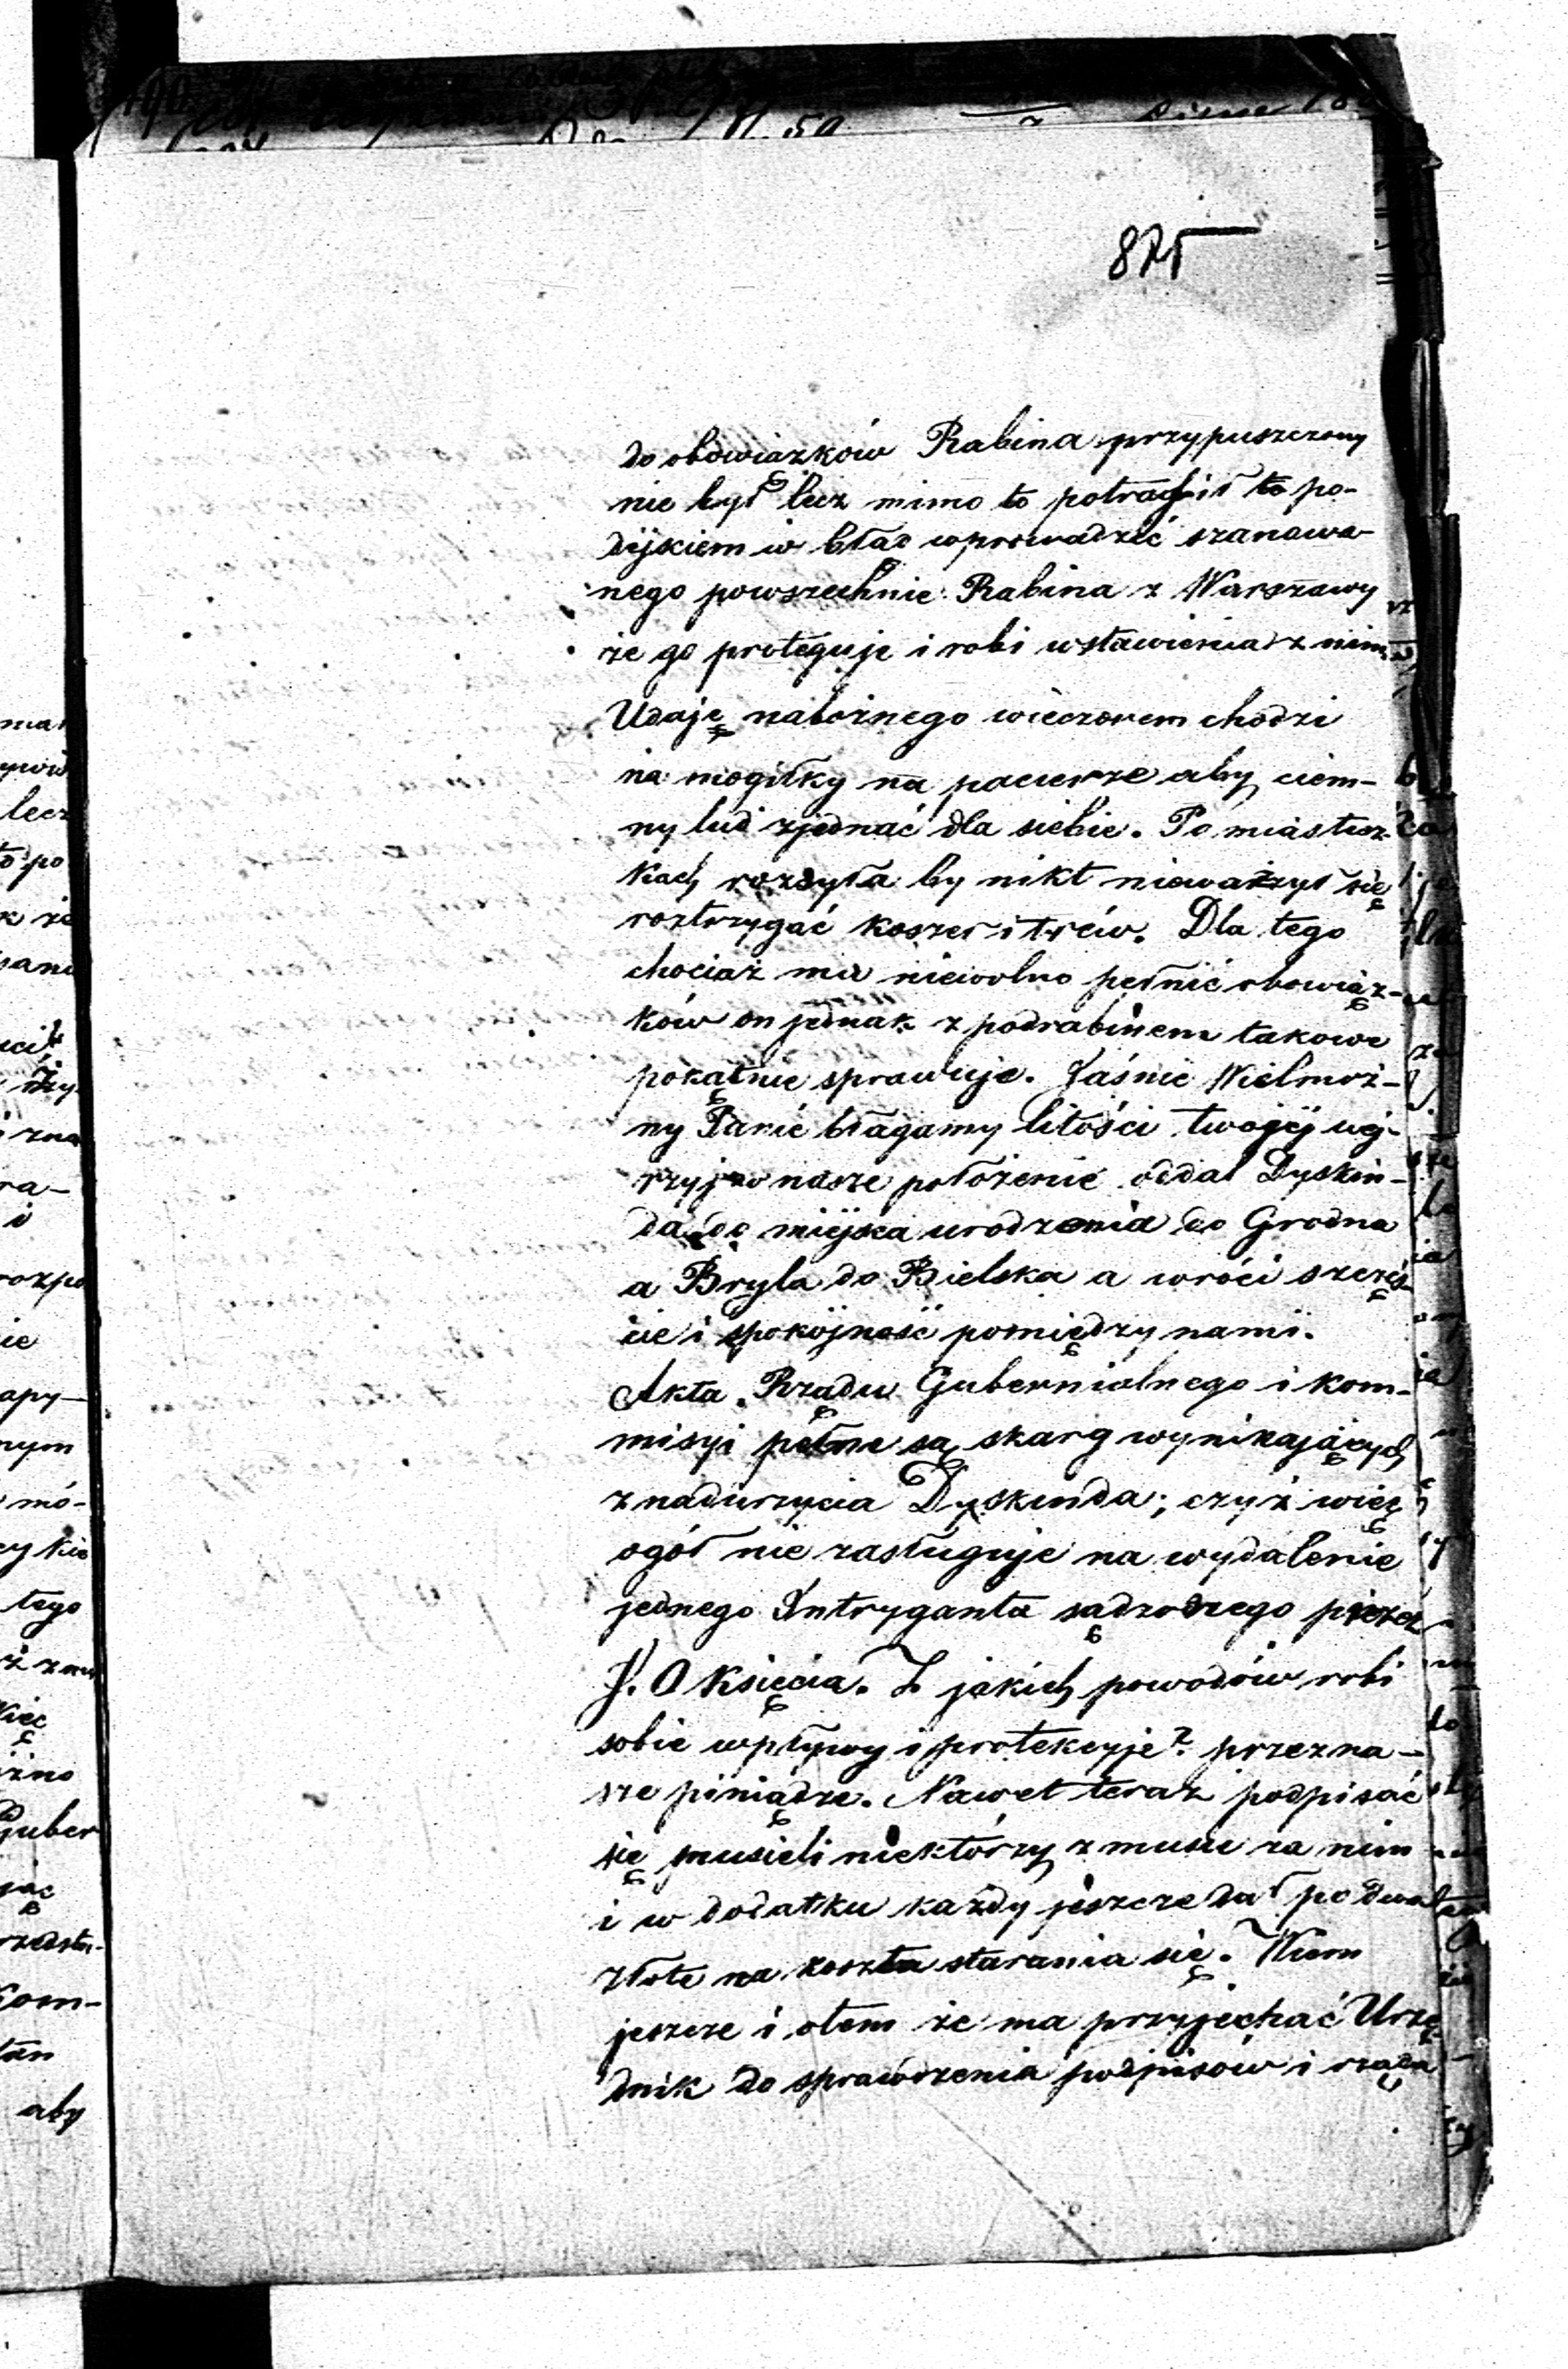 875
do obowiązków Rabina przypuszczony
nie był lecz mimo to potrafił to po-
dyjskiem w błąd wprowadzić szanowa-
nego powszechnie Rabina z Warszawy
że go proteguje i robi wstawienia z nim
Udaję nabożnego wieczorem chodzi
na mogiłky na pacierze aby ciem-
ny lud zjednać dla siebie. Po miastecz-
kach rozsyła by nikt nieważył się
roztrzygać koszer i tréw. Dla tego
chociaż mu niewolno pełnić obowiąz-
ków on jednak z podrabinem takowe
pokątnie sprawuje. Jaśnie Wielmoż-
ny Panie błagamy litości twojéj wej-
rzyj w nasze położenie oddal Dyskin-
da do miéjsca urodzenia do Grodna
a Bryla do Bielska a wróci szczęś
cie i spokójność pomiędzy nami.
Akta Rządu Gubernialnego i kom-
misyi pełne są skarg wynikających
z nadurzycia Dyskinda; czyż więc
ogół nie zasługuje na wydalenie
jednego Intryganta sądzonego przez
J. O Księcia. Z jakich powodów robi
sobie wpływy i protekcyje? przez na-
sze piniądze. Nawet teraz podpisać
się musieli niektórzy z musu za nim
i w dodatku każdy jeszcze dał po dwa
złote na koszta starania się. Wiem
jeszcze i otem że ma przyjechać Urzę
dnik do sprawdzenia podpisów i rząda